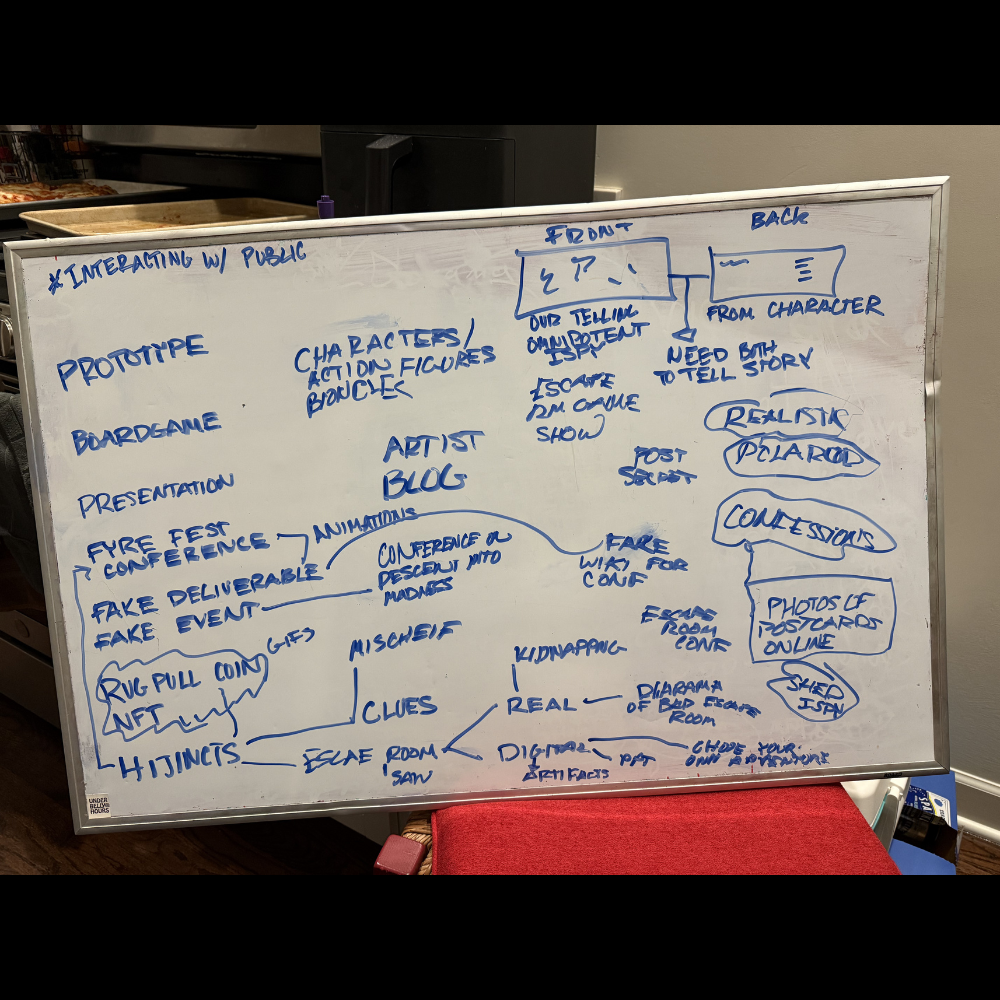 *INTERACTING W/ PUBLIC
FRONT
BACK
OUR TELLING
OMNIPOTENT
ISPY
FROM CHARACTER
NEED BOTH
TO TELL STORY
PROTOTYPE
CHARACTERS/
ACTION FIGURES
BIONCLES
ESCAPE
RM GAME
SHOW
REALISTIC
BOARDGAME
ARTIST
BLOG
POST
SECRET
POLAROID
PRESENTATION
CONFESSIONS
FYRE FEST
CONFERENCE
ANIMATIONS
CONFERENCE ON
DESCENT INTO
MADNESS
FAKE
WIKI FOR
CONF
FAKE DELIVERABLE
FAKE EVENT
PHOTOS OF
POSTCARDS
ONLINE
ESCAPE
ROOM
CONF
RUG PULL COIN
NFT
GIFS
MISCHEIF
KIDNAPPING
SHED
ISPY
CLUES
REAL
DIARAMA
OF BAD ESCAPE
ROOM
HIJINCTS
ESCAE ROOM
SAW
DIGITAL
ARTIFACTS
PPT
CHOSE YOUR
OWN ADVENTURE
UNDER
BELOW
HOURS